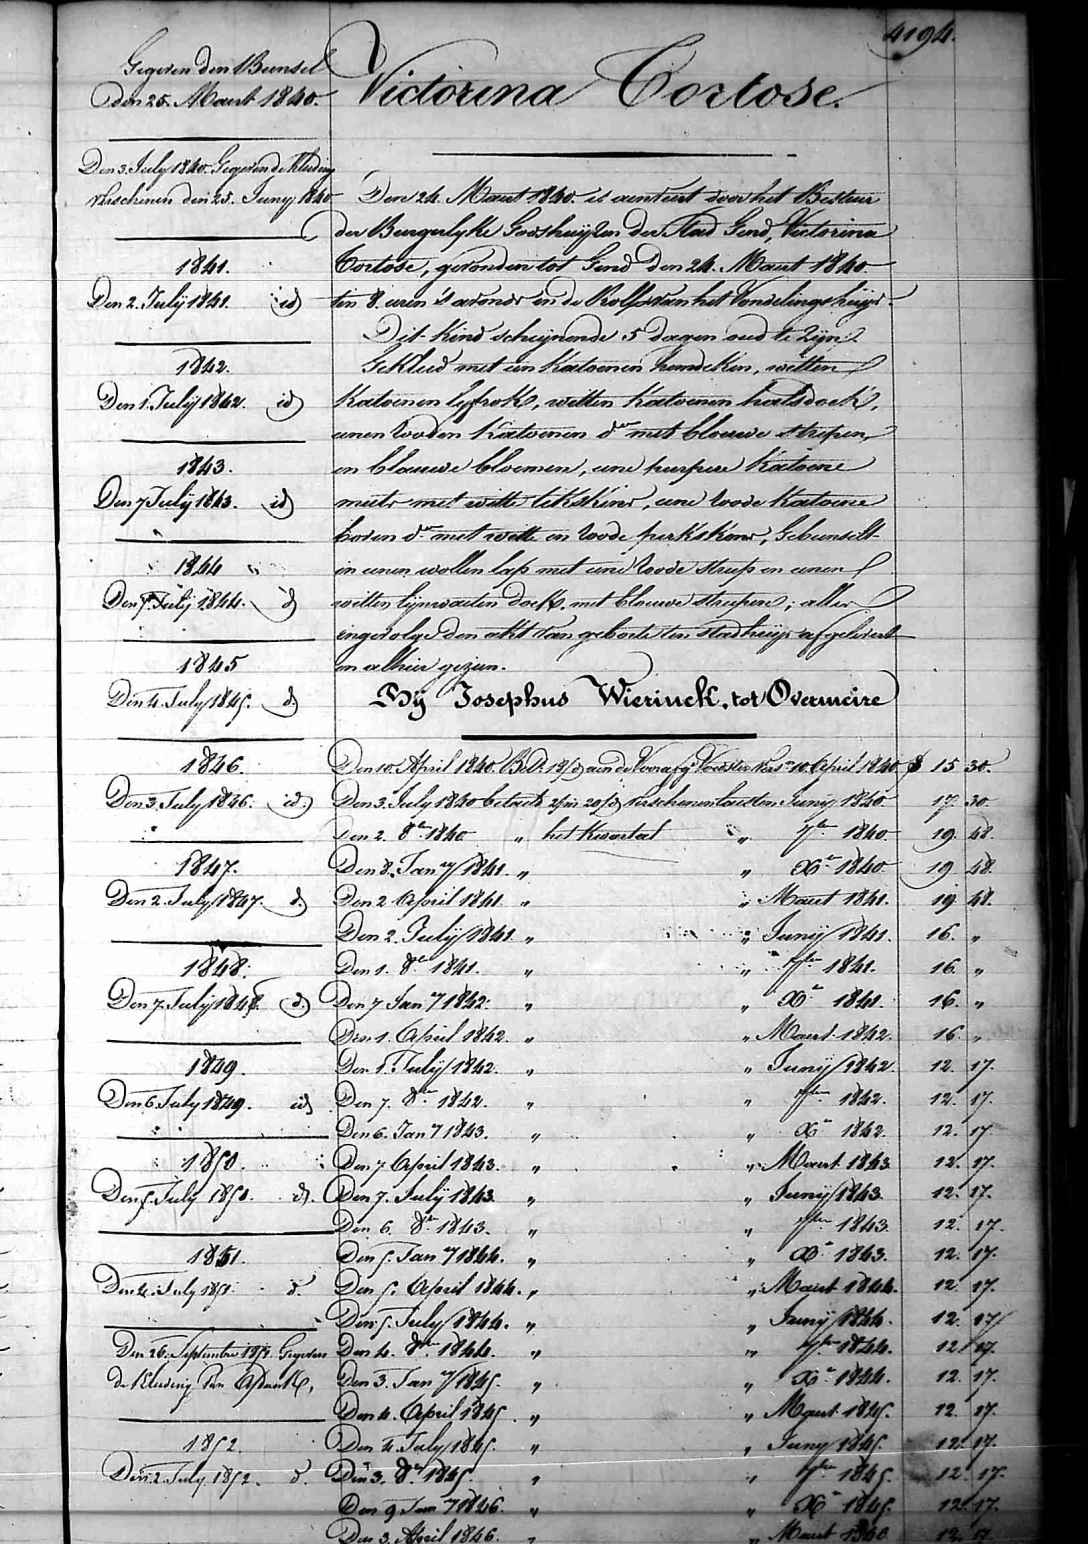 4194.
Victorina Tortose.
Gegeven den Bunsel
den 25. Maert 1840.
Den 3. July 1840. Gegeven de Kleeding
verschenen den 25. Juny 1840
1841.
Den 2. July 1841. id
1842.
Den 1. July 1842. id
1843.
Den 7 July 1843. id
1844
Den 5. July 1844. d
1845
Den 4. July 1845. d
1846.
Den 3. July 1846. id.
1847.
Den 2. July 1847. d.
1848.
Den 7. July 1848. d.
1849.
Den 6. July 1849. id
1850.
Den 5. July 1850. d.
1851
Den 4. July 1851. d.
Den 26. September 1851. Gegeven
de Kleeding van
1852.
Den 2. July 1852. d.
Den 24. Maert 1840. is aenveert door het Bestuer
der Burgerlyke Godshuyzen der Stad Gend, Victorina
Tortose, gevonden tot Gend den 24. Maert 1840
ten 8. uren s'avonds in de Rolle van het Vondelingshuys.
Dit Kind schynende 5 dagen oud te zyn.
Gekleed met een Katoenen hemdeken, witten
Katoenen lyfrok, witten Katoenen halsdoek,
eenen rooden Katoenen do met blauwe strepen,
en blauwe bloemen, eene purpere Katoene
muts met witte, eene roode Katoene
boven do met witte en roode perkskens, Gebunselt
in eenen wollen lap met eene roode streep en eenen
witten lynwaeten doek, met blauwe streepen; alles
ingevolge den akt van geboorte ten stadhuys afgelevert
en alhier gezien.
By Josephus Wierinck, tot Overmeire
Den 10. April 1840 aen de April 1840 15 30.
Den 3. July 1840 betaelt verschenen Juny 1840 17. 30
Den 2. 8br 1840 " het Kwartael " 7br 1840 19. 48.
Den 8. Jany 1841. " " Xr 1840 19 48.
Den 2 April 1841 " " Maert 1841. 19 48.
Den 2. July 1841 " " Juny 1841. 16. "
Den 1. 8r 1841. " " 7br 1841. 16. "
Den 7 Jany 1842. " " Xr 1841 16. "
Den 1. April 1842. " " Maert 1842. 16. "
Den 1. July 1842. " " Juny 1842 12. 17.
Den 7. 8br 1842. " " 7br 1842. 12. 17.
Den 6. Jany 1843. " " Xr 1842. 12. 17
Den 7 April 1843. " " Maert 1843 12. 17.
Den 7. July 1843 " " Juny 1843 12. 17.
Den 6. 8r 1843. " " 7br 1843. 12. 17.
Den 5. Jany 1844. " " Xr 1843. 12. 17.
Den 5. April 1844. " " Maert 1844. 12. 17.
Den 5. July 1844. " " Juny 1844. 12. 17
Den 4. 8br 1844. " " 7br 1844. 12 17.
Den 3. Jany 1845. " " Xr 1844. 12. 17.
Den 4. April 1845. " " Maert 1845. 12. 17.
Den 4. July 1845. " " Juny 1845. 12. 17.
Den 3. 8r 1845. " " 7br 1845. 12. 17.
Den 9 Jany 1846. " " Xr 1845. 12. 17.
Den 3. April 1846. " " Maert 12. 17